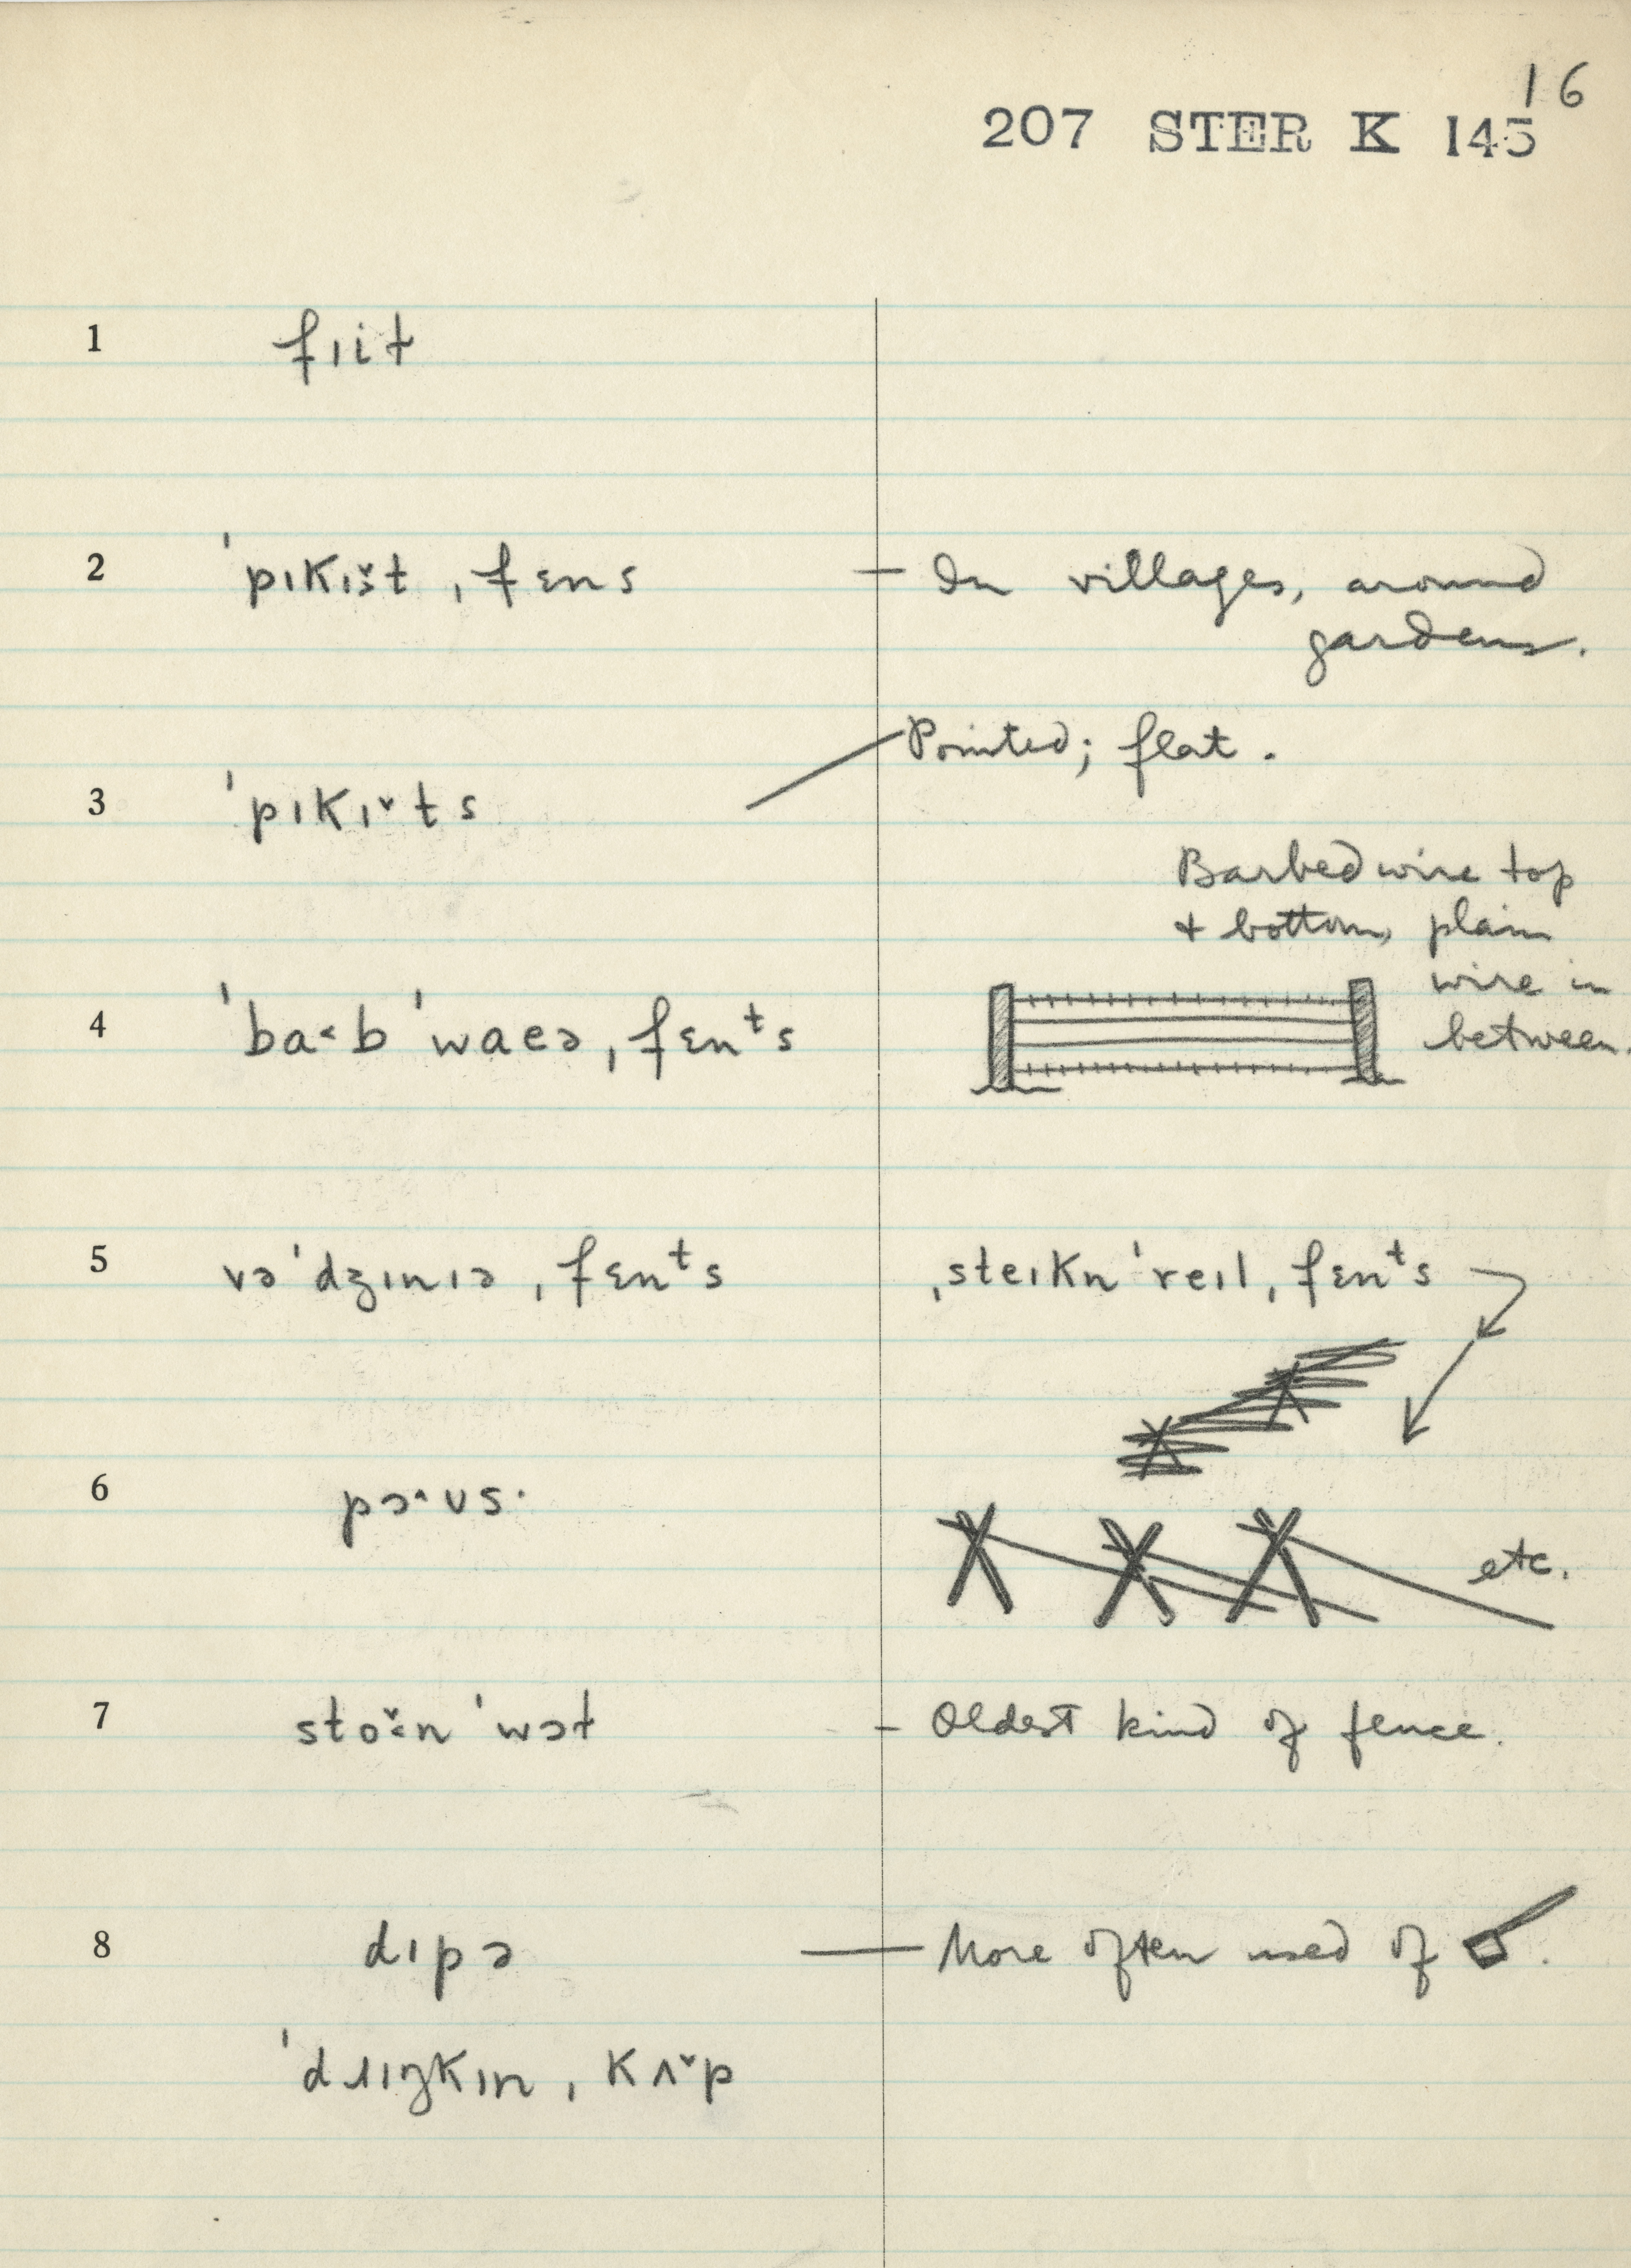 16
207 STER K 145
1 fɪit
2 ˈpɪkɪ̌t ˌfɛns — In villages, around
gardens.
3 ˈpɪkɪˇts Pointed; flat.
Barbed wire top
+ bottom, plain
wire in
between.
4 ˈba˂b ˈwaeə ˌfɛnᵗs
5 vəˈdʒɪnɪə ˌfɛnᵗs ˌsteɪknˈreɪl ˌfɛnᵗs
6 pɔ˄ʊs·
etc.
7 stoˇ·n ˈwɔɫ – Oldest kind of fence.
8 dɪpə — More often used of .
ˈdɹɪŋkɪn ˌkʌˇp